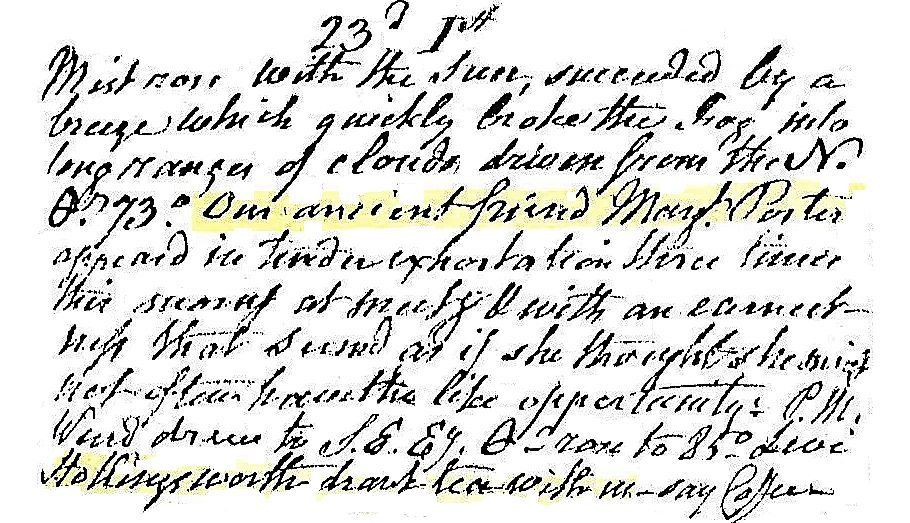 23d 1st
Mist rose with the Sun, succeeded by a
breeze which quickly broke the Fog into
long ranges of clouds driven from the N.
73.° Our ancient friend Margt. Porter
appeard in tender exhortation three times
this morng at meetg & with an earnest-
ness that seemd as if she thought she might
not often have the like opportunity: P.M.
Wind drew to S.E. Ey. rose to 85° Levi
Hollingsworth drank tea with us - say Coffee